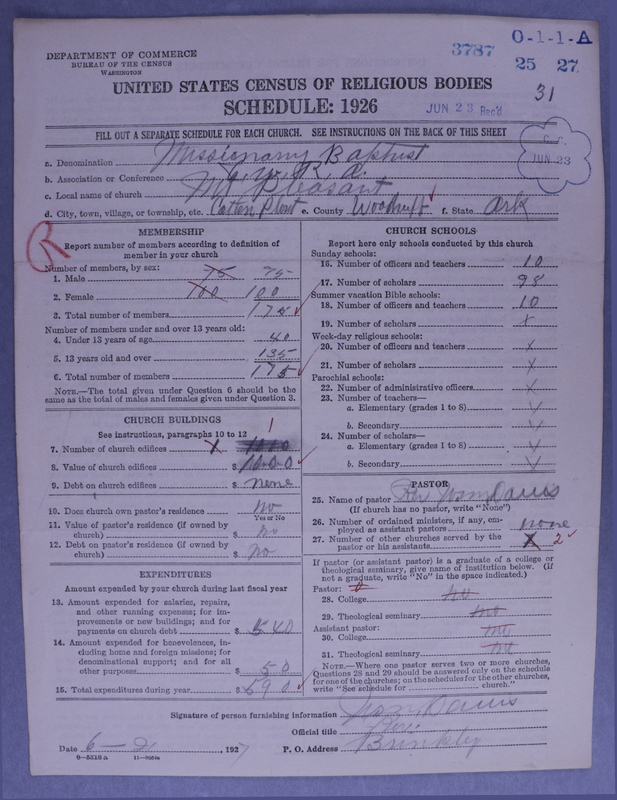 DEPARTMENT OF COMMERCE
BUREAU OF THE CENSUS
WASHINGTON
3787
O-1-1-A
25 27
31
UNITED STATES CENSUS OF RELIGIOUS BODIES
SCHEDULE: 1926
JUN 23 Rec'd
FILL OUT A SEPARATE SCHEDULE FOR EACH CHURCH. SEE INSTRUCTIONS ON THE BACK OF THIS SHEET
JUN 23
a. Denomination Missionary Baptist
b. Association or Conference
c. Local name of church Mt Pleasant
d. City, town, village, or township, etc. Cotton Plant e. County Woodruff f. State Ark
R
MEMBERSHIP
Report number of members according to definition of
member in your church
Number of members, by sex:
1. Male 75 75
2. Female 100 100
3. Total number of members 175
Number of members under and over 13 years old:
4. Under 13 years of age 40
5. 13 years old and over 135
6. Total number of members 175
NOTE.—The total given under Question 6 should be
the same as the total of males and females given under Question 3.
CHURCH BUILDINGS
See instructions, paragraphs 10 to 12
7. Number of church edifices 1
8. Value of church edifices $ 1000
9. Debt on church edifices $ none
10. Does church own pastor's residence No
Yes or No
11. Value of pastor's residence (if owned by
church) $ No
12. Debt on pastor's residence (if owned by
church) $ No
EXPENDITURES
Amount expended by your church during last fiscal year
13. Amount expended for salaries, repairs,
and other running expenses; for im-
provements or new buildings; and for
payments on church debt $ 540
14. Amount expended for benevolences, in-
cluding home and foreign missions; for
denominational support; and for all
other purposes $ 50
15. Total expenditures during year $ 590
CHURCH SCHOOLS
Report here only schools conducted by this church
Sunday schools:
16. Number of officers and teachers 10
17. Number of scholars 98
Summer vacation Bible schools:
18. Number of officers and teachers 10
19. Number of scholars x
Week-day religious schools:
20. Number of officers and teachers x
21. Number of scholars x
Parochial schools:
22. Number of administrative officers x
23. Number of teachers—
a. Elementary (grades 1 to 8)
b. Secondary
24. Number of scholars—
a. Elementary (grades 1 to 8)
b. Secondary
PASTOR
25. Name of pastor Rev Davis
(If church has no pastor, write "None")
26. Number of ordained ministers, if any, em-
ployed as assistant pastors none
27. Number of other churches served by the
pastor or his assistants 2
If pastor (or assistant pastor) is a graduate of a college or
theological seminary, give name of institution below. (If
not a graduate, write "No" in the space indicated.)
Pastor: 0
28. College no
29. Theological seminary no
Assistant pastor:
30. College no
31. Theological seminary no
NOTE.—Where one pastor serves two or more churches,
Questions 28 and 29 should be answered only on the schedule
for one of the churches; on the schedules for the other churches,
write "See schedule for church."
Signature of person furnishing information Davis
Official title
Date 6-2, 1927 P. O. Address Brinkley